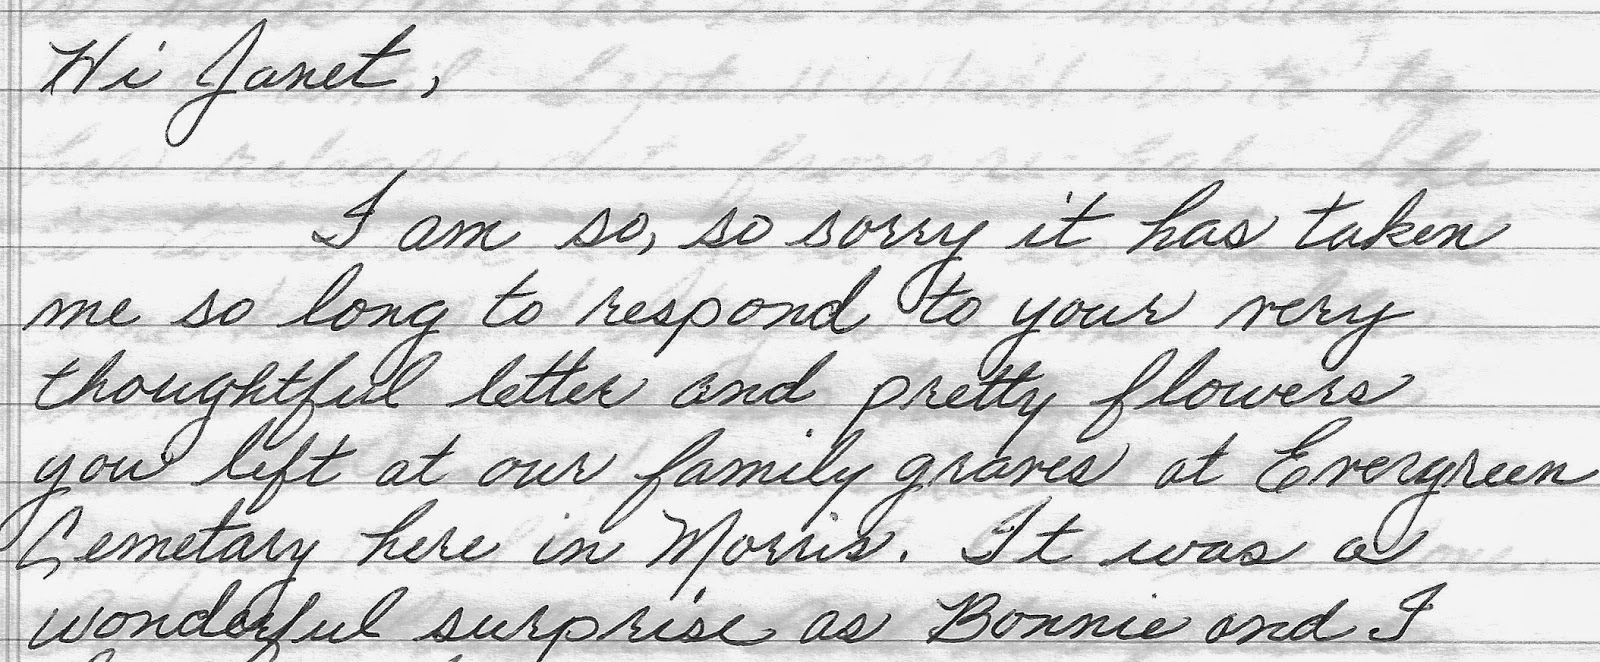 Hi Janet,
I am so, so sorry it has taken
me so long to respond to your very
thoughtful letter and pretty flowers
you left at our family graves at Evergreen
Cemetary here in Morris. It was a
wonderful surprise as Bonnie and I